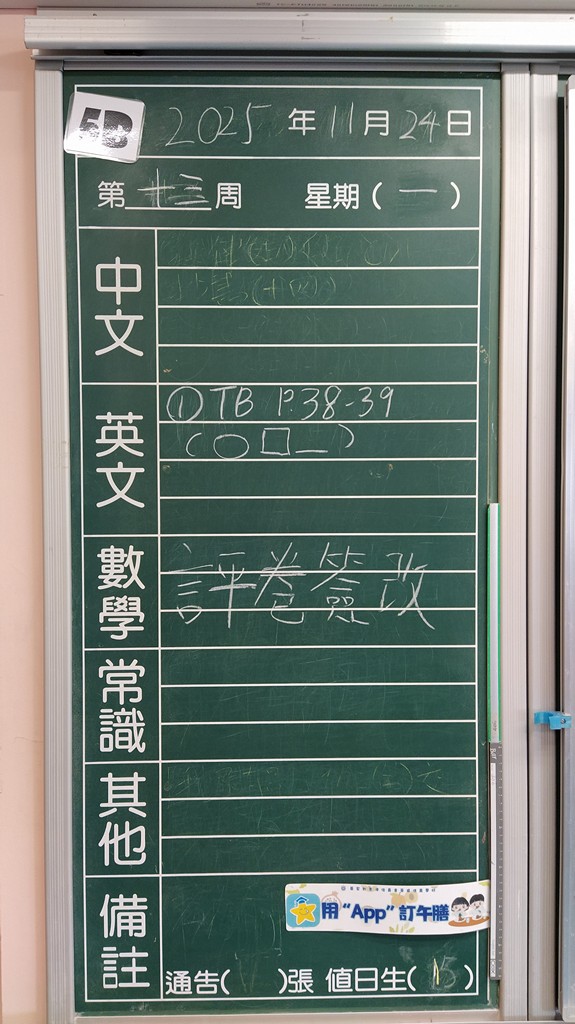 5D
2025 年 11 月 24 日
第 十三 周 星期 ( 一 )
中文
英文
① TB P.38-39
(○□_)
數學
評卷簽改
常識
其他
備註
用 “App” 訂午膳
通告( )張 值日生( 15 )